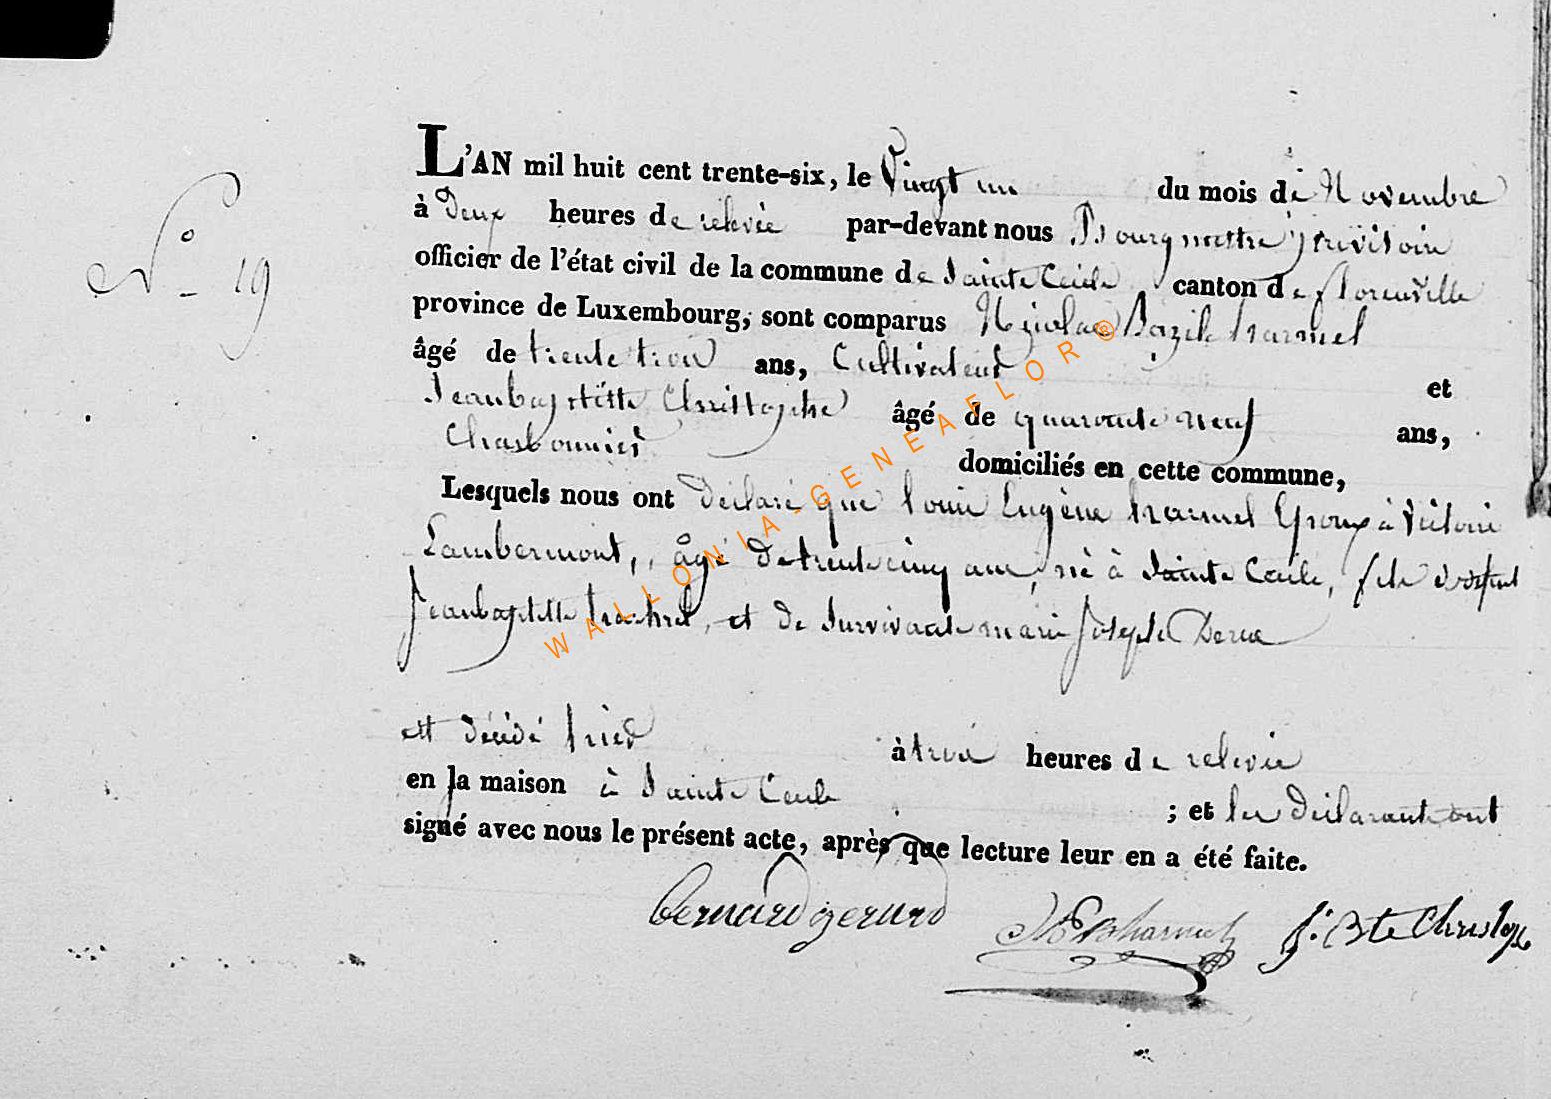 N° 19
L'AN mil huit cent trente-six, le Vingt un du mois de Novembre
à Deux heures de relevée par-devant nous Bourgmestre provisoire
officier de l'état civil de la commune de Sainte Cecile canton de florenville
province de Luxembourg, sont comparus Nicolas Bazile harmel
âgé de trente trois ans, Cultivateur et
Jeanbaptiste Christophe âgé de quarante neuf ans,
Charbonnier domiciliés en cette commune,
Lesquels nous ont déclaré que Louis Eugène harmel Epoux à Victoire
Lambermont, âgé de trente cinq ans, né à Sainte Cecile, fils
Jeanbaptiste harmel, et de survivante marie Joseph
est décédé hier à trois heures de relevée
en sa maison à Sainte Cecile ; et les déclarants ont
signé avec nous le présent acte, après que lecture leur en a été faite.
bernard gerard harmel J. Bte Christophe
WALLONIA-GENEAFLOR®